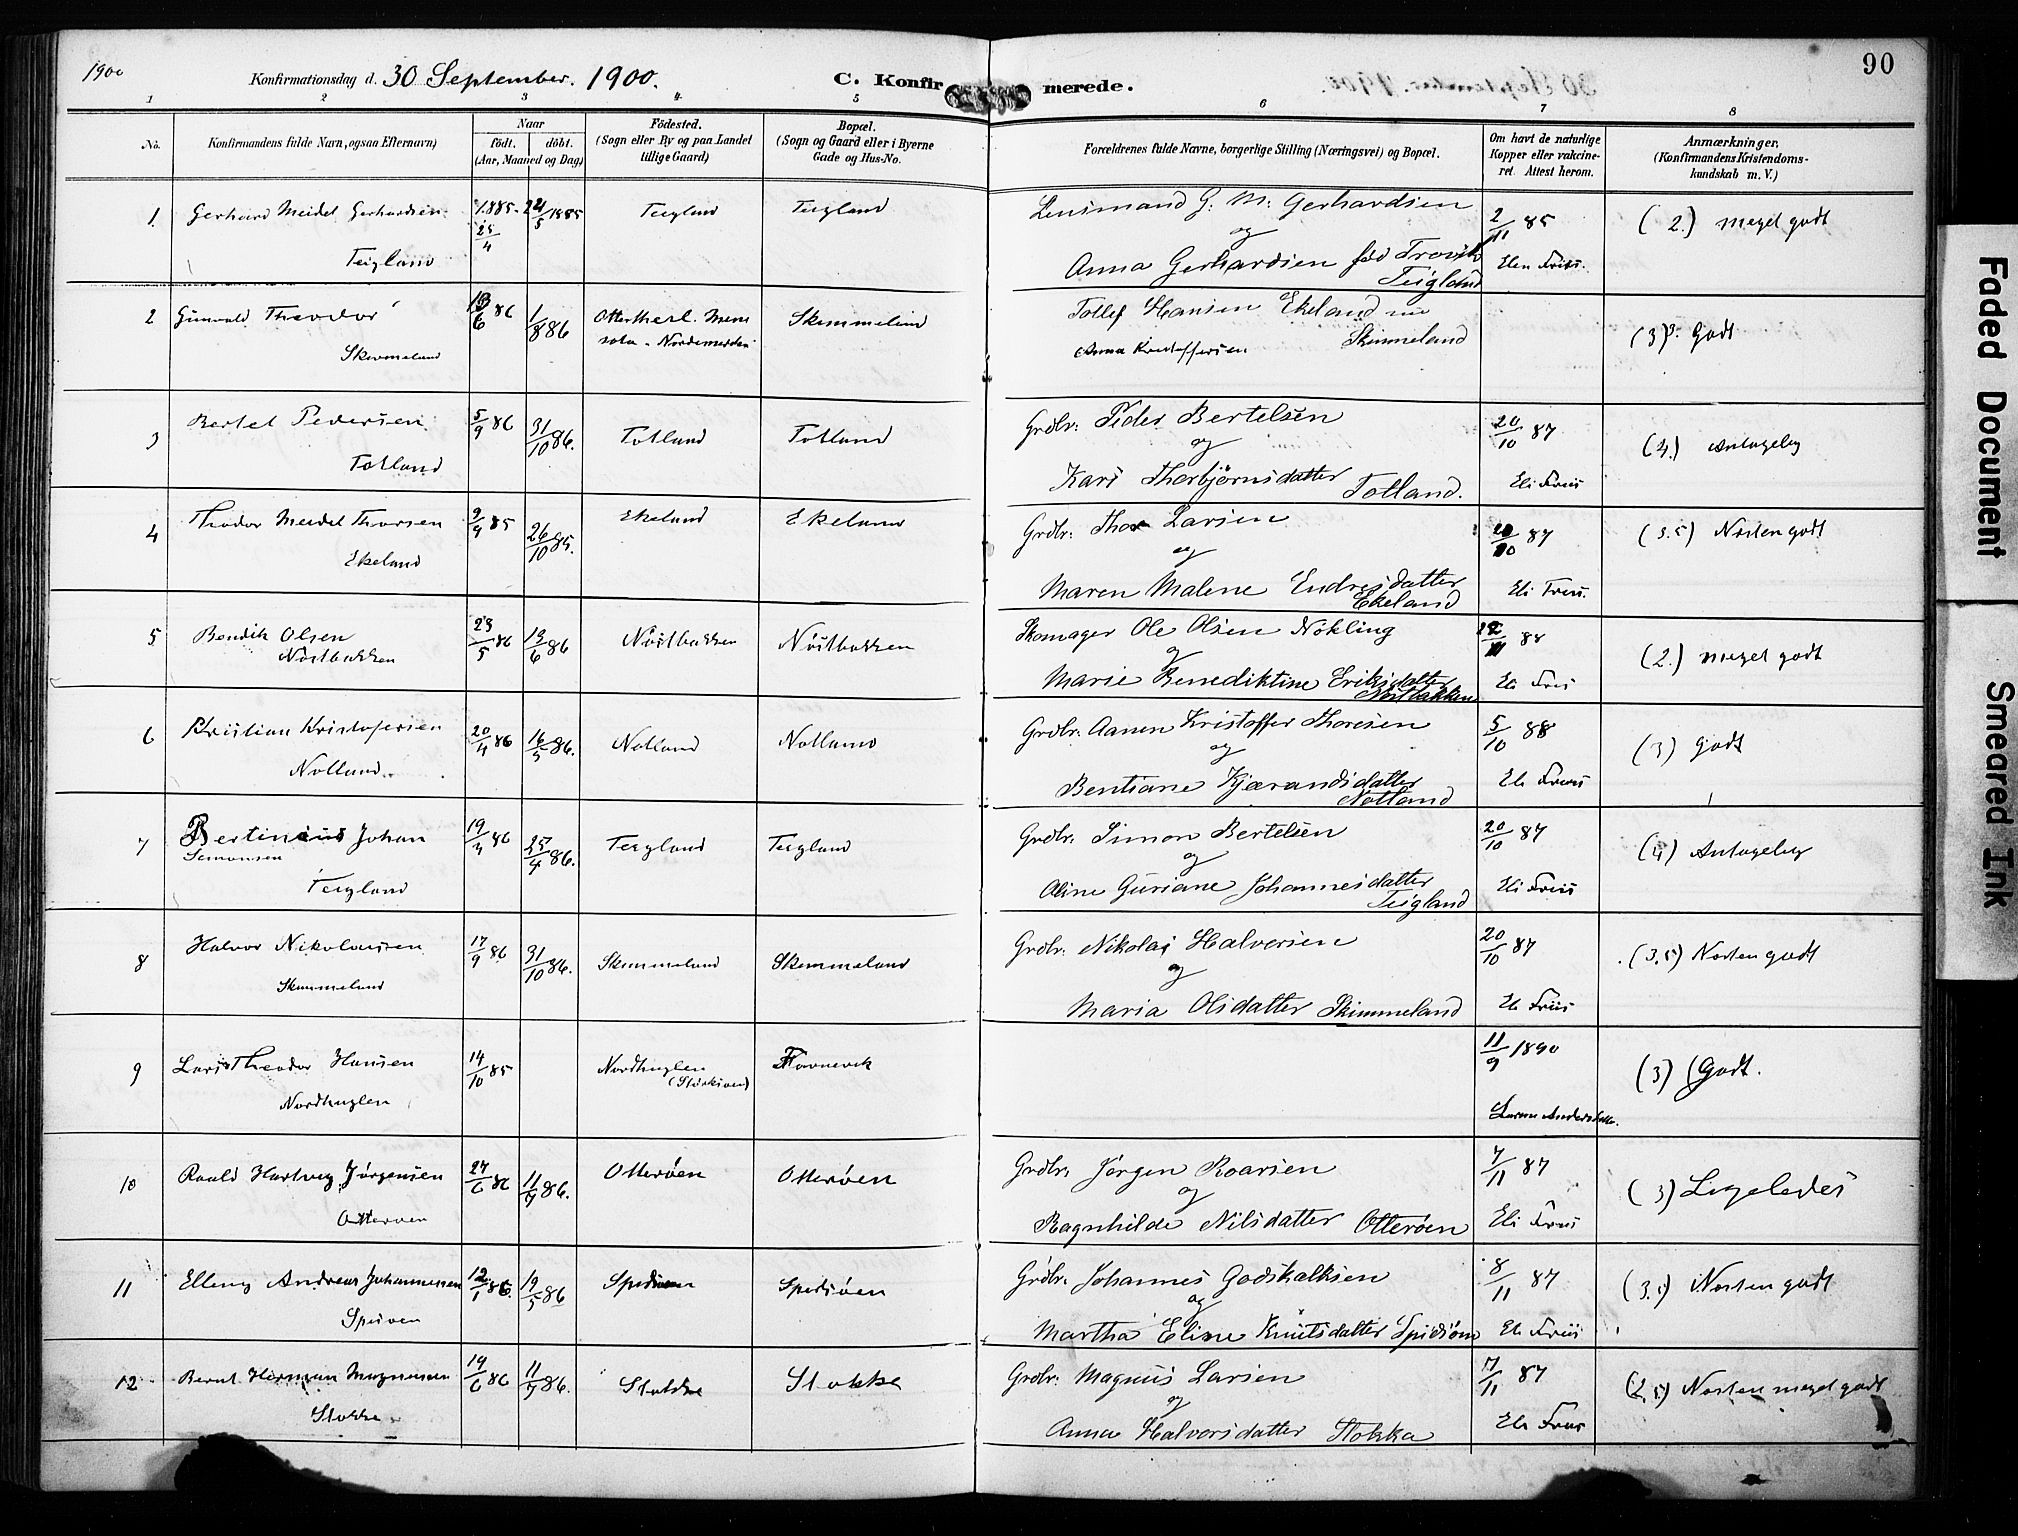 1900
Konfirmationsdag d. 30 September. 1900.
C. Konfirmerede.
90
1 2 3 4 5 6 7 8
No.
Konfirmandens fulde Navn, ogsaa Efternavn)
Naar
födt. döbt.
(Aar, Maaned og Dag)
Födested.
(Sogn eller By og paa Landet
tillige Gaard)
Bopæl.
(Sogn og Gaard eller i Byerne
Gade og Hus-No.
Forældrenes fulde Navne, borgerlige Stilling (Næringsvei) og Bopæl.
Om havt de naturlige
Kopper eller vakcine-
ret. Attest herom.
Anmærkninger.
(Konfirmandens Kristendoms-
kundskab m. V.)
1. Gerhard Meidel Gerhardsen 1885 25/4 24/5 1885 Teigland Teigland Lensmand G. M. Gerhardsen 2/11 85 (2.) meget godt
og
Teigland Anna Gerhardsen född Trovik Friis.
Teigland
2 Gunvald Theodor 13/6 86 1/8 86 Skimmeland Tollef Hansen Ekeland nu (3) Godt
Skimmeland Anna Kristoffersen Skimmeland
3 Bertel Pedersen 5/9 86 31/10 86. Totland Totland Grdbr. Peder Bertelsen 20/10 87 (4.) Antagelig
og
Totland Kari Thorbjörnsdatter Totland. Eli Friis
4 Theodor Meidel Thorsen 9/9 85 26/10 85. Ekeland Ekeland Grdbr. Thor Larsen 20/10 87 (3.5) Næsten godt
og
Ekeland Maren Malene Endresdatter Eli Friis.
Ekeland
5 Bendik Olsen 23/5 86 13/6 86 Nöstbakken Nöstbakken Skomager Ole Olsen Nökling 88 (2.) meget godt
Nöstbakken og
Marie Benediktine Eriksdatter Eli Friis
Nöstbakken
6 Kristian Kristofersen 20/4 86 16/5 86. Notland Notland Grdbr. Aanen Kristoffer Thoresen 5/10 88 (3) godt
og
Notland. Bentiane Kjærandsdatter Eli Friis
Notland
7 Bertinius Johan 19/3 86 25/4 86. Teigland Teigland Grdbr. Simon Bertelsen 20/10 87 (4) Antagelig
Simonsen og
Teigland Oline Guriane Johannesdatter Eli Friis
Teigland
8 Halvor Nikolaisen 17/9 86 31/10 86. Skimmeland Skimmeland Grdbr. Nikolai Halversen 20/10 87 (3.5) Næsten godt
og
Skimmeland Maria Olsdatter Skimmeland Eli Friis
9 Lars Theodor Hansen 14/10 85 Nordhuglen Fovnevik 11/9 1890 (3) Godt.
Nordhuglen Andersdatter.
10 Roald Hartvig Jörgensen 27/6 86 11/9 86. Otteröen Otteröen Grdbr. Jörgen Roarsen 7/11 87 (3) Ligeledes
og
Otteröen Ragnhilde Nilsdatter Otteröen Eli Friis
11 Elling Andreas Johannessen 12/1 86. 19/5 86 Spidsöen Spidsöen Grdbr. Johannes Godskalksen 8/11 87 (3.5) Næsten godt
og
Spidsöen Martha Eline Knutsdatter Spidsöen Eli Friis
12 Bernt Herman Magnussen 19/6 86 11/9 86. Stokke Stokke Grdbr. Magnus Larsen 7/11 87 (2.5) Næsten meget godt
og
Stokke Anna Halvorsdatter Stokka Eli Friis
Faded Document
Smeared Ink